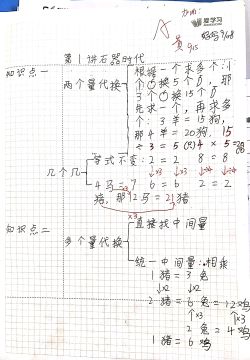 加油!
A
黄 9/15
爱学习
好好 9/08
第1讲石器时代
知识点一
两个量代换
根据一个求多个:
1○换5个□,那
3个○换15个□
先求一个,再求多
个:3羊=15狗,
那4羊=20狗, 15
÷3=5(只)4×5=20
几个几
等式不变:2=2 8=8
↓×3 ↓×3 ↓÷4 ↓÷4
6=6 2=2
4马=7
猪,那12马=21猪
×3
知识点二
多个量代换
直接找中间量
统一中间量:相乘
1猪=3兔
↓×2 ↓×2
2猪=6兔=12鸡
↑×3 ↑×3
2兔=4鸡
1猪=6鸡